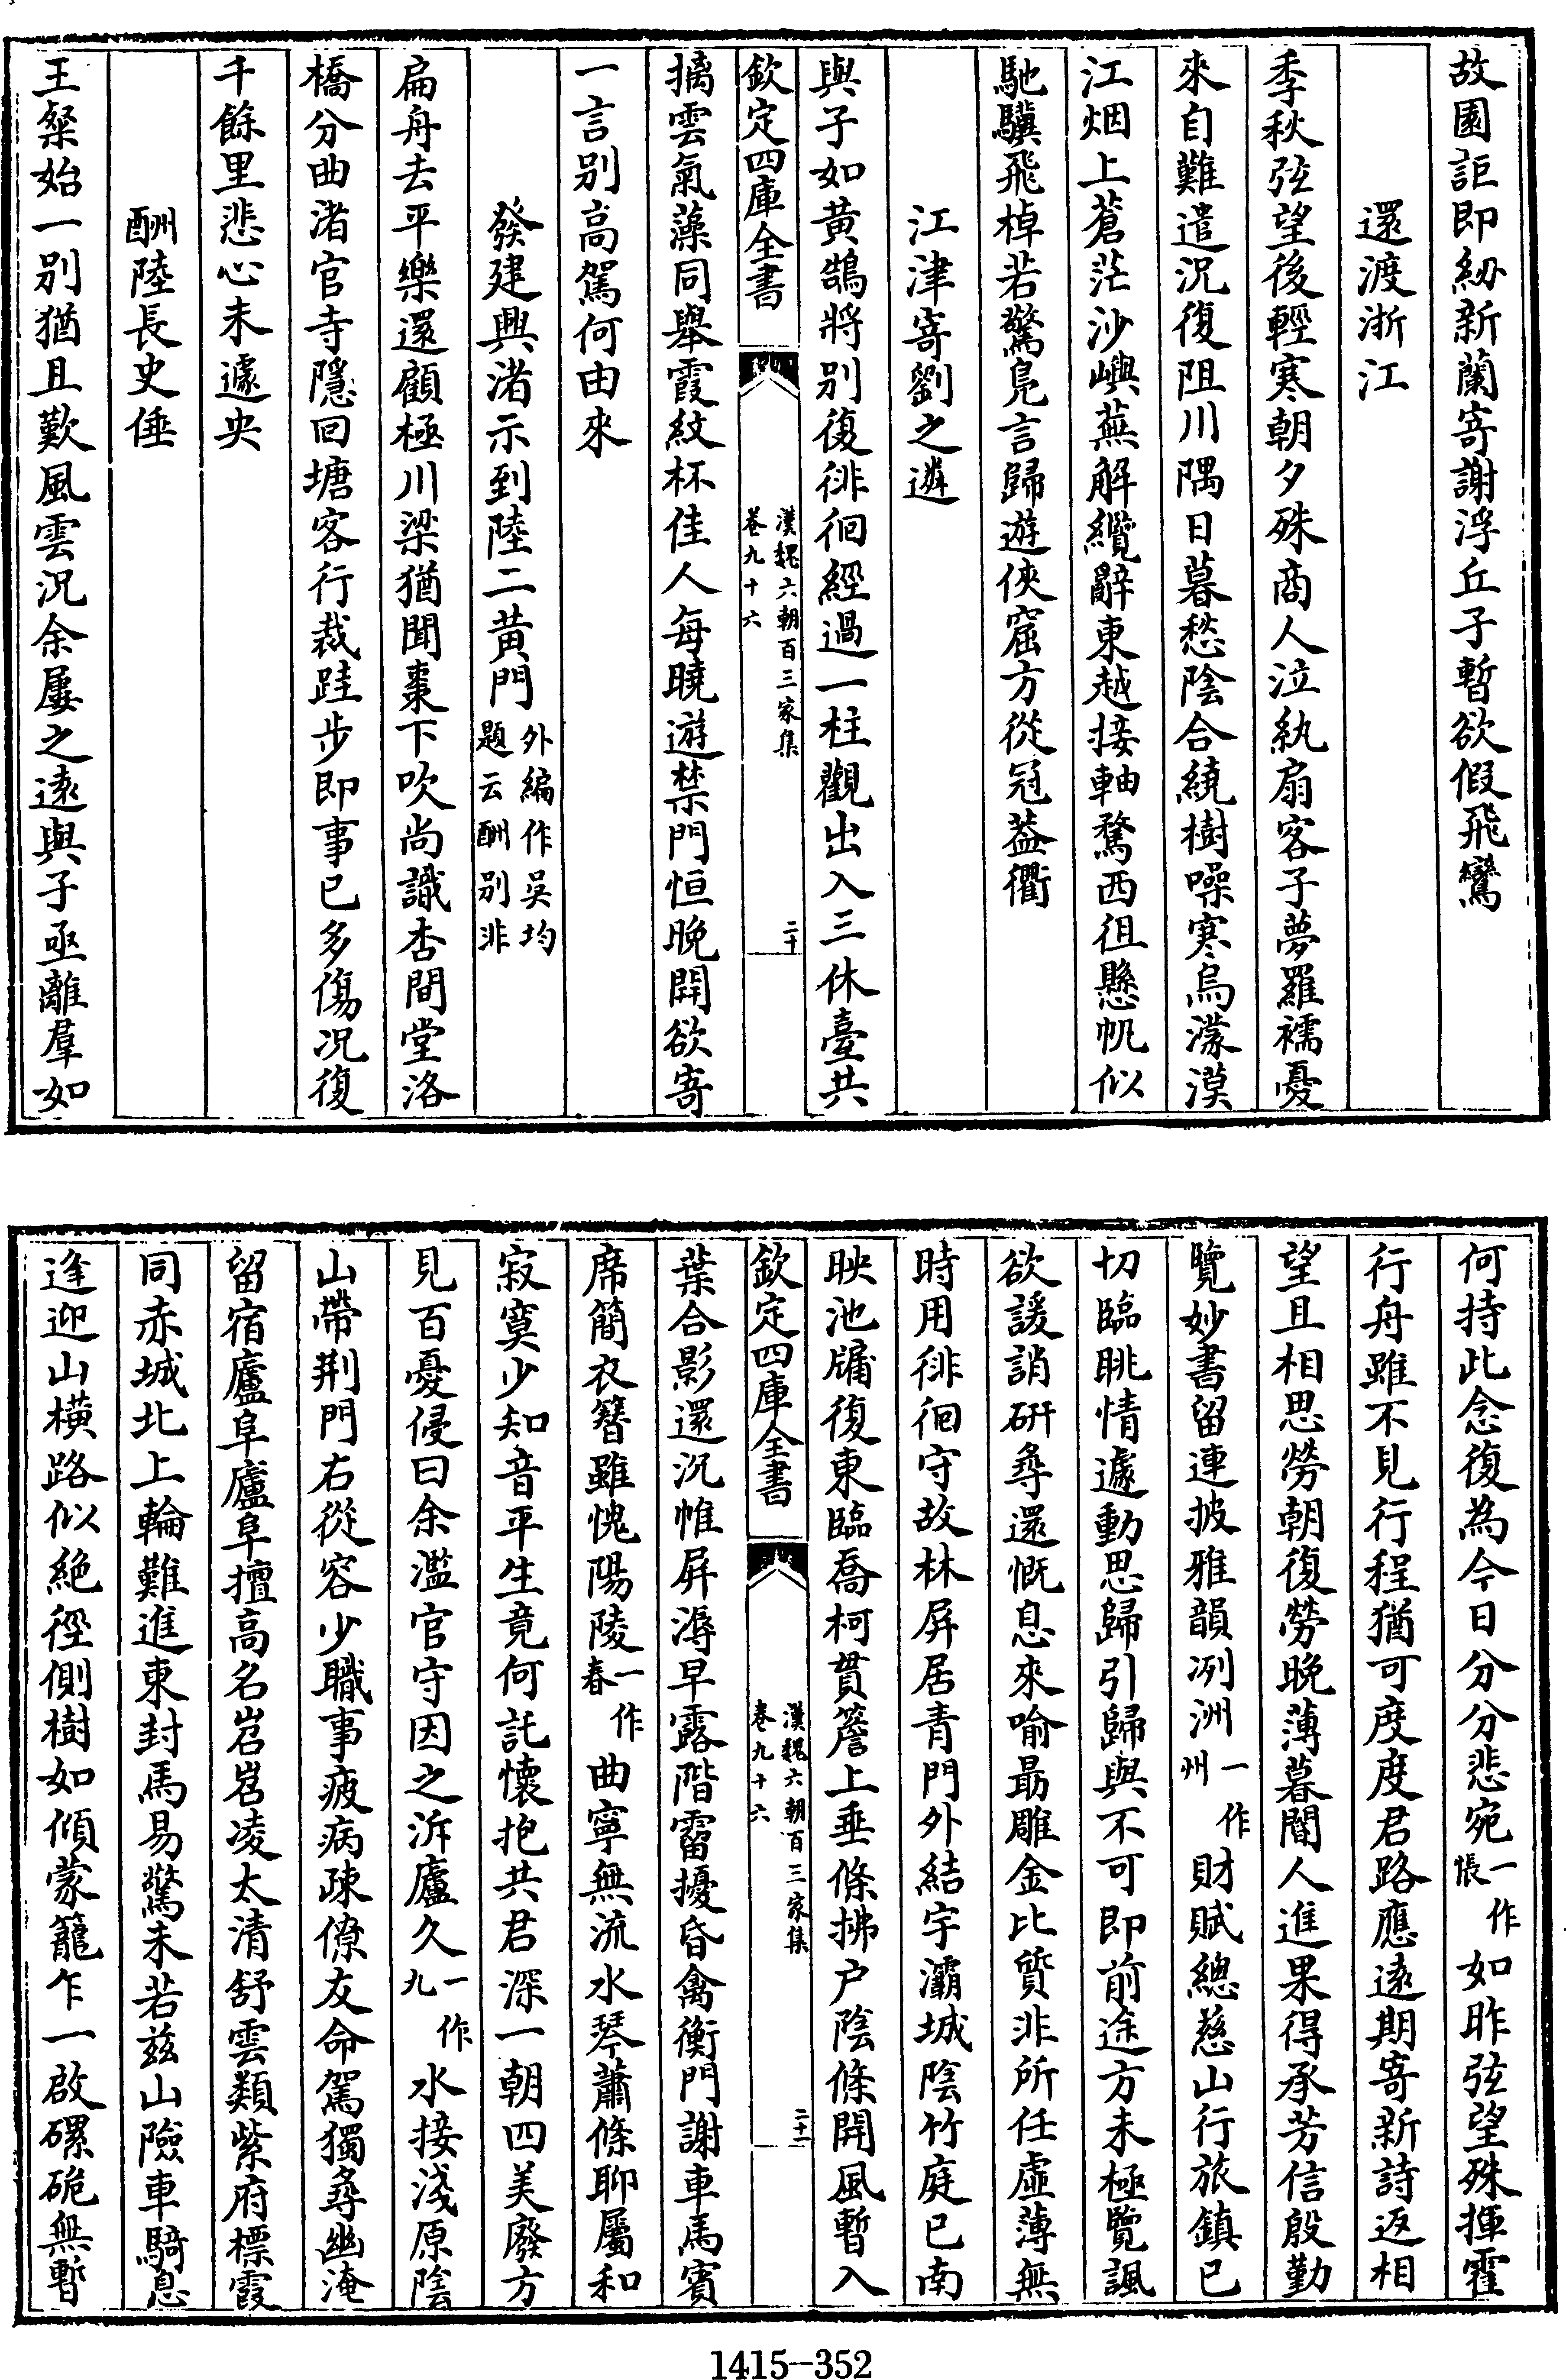 故園詎即紉新蘭寄謝浮丘子暫欲假飛鸞
還渡浙江
季秋弦望後輕寒朝夕殊商人泣紈扇客子夢羅襦憂
來自難遣況復阻川隅日暮愁陰合繞樹噪寒烏濛漠
江烟上蒼茫沙嶼蕪解纜辭東越接軸騖西徂懸帆似
馳驥飛棹若驚鳧言歸遊俠窟方從冠葢衢
江津寄劉之遴
與子如黄鵠將別復徘徊經過一柱觀出入三休臺共
欽定四庫全書
漢魏六朝百三家集
卷九十六
二十
摛雲氣藻同舉霞紋杯佳人每曉遊禁門恒晚開欲寄
一言别高駕何由來
發建興渚示到陸二黄門
外編作吳均
題云酬别非
扁舟去平樂還顧極川梁猶聞棗下吹尚識杏間堂洛
橋分曲渚官寺隱回塘客行裁跬步即事已多傷况復
千餘里悲心未遽央
酬陸長史倕
王粲始一別猶且歎風雲況余屢之遠與子亟離羣如
何持此念復為今日分分悲宛
一作
悵
如昨弦望殊揮霍
行舟雖不見行程猶可度度君路應遠期寄新詩返相
望且相思勞朝復勞晚薄暮閽人進果得承芳信殷勤
覽妙書留連披雅韻冽洲
一作
州
財賦總慈山行旅鎮已
切臨眺情遽動思歸引歸與不可即前途方未極覽諷
欲諼誚研尋還慨息來喻勗雕金比質非所任虛薄無
時用徘徊守故林屏居青門外結宇灞城陰竹庭已南
映池牖復東臨喬柯貫簷上垂條拂户陰條開風暫入
欽定四庫全書
漢魏六朝百三家集
卷九十六
二十一
葉合影還沉帷屏溽早露階霤擾昏禽衡門謝車馬賓
席簡衣簪雖愧陽陵
一作
春
曲寧無流水琴蕭條聊屬和
寂寞少知音平生竟何託懷抱共君深一朝四美廢方
見百憂侵曰余濫官守因之泝廬久
一作
九
水接淺原陰
山帶荆門右從容少職事疲病疎僚友命駕獨尋幽淹
留宿廬阜廬阜擅高名岧岧凌太清舒雲類紫府標霞
同赤城北上輪難進東封馬易驚未若兹山險車騎息
逢迎山橫路似絶徑側樹如傾蒙籠乍一啟磥硊無暫
1415—352